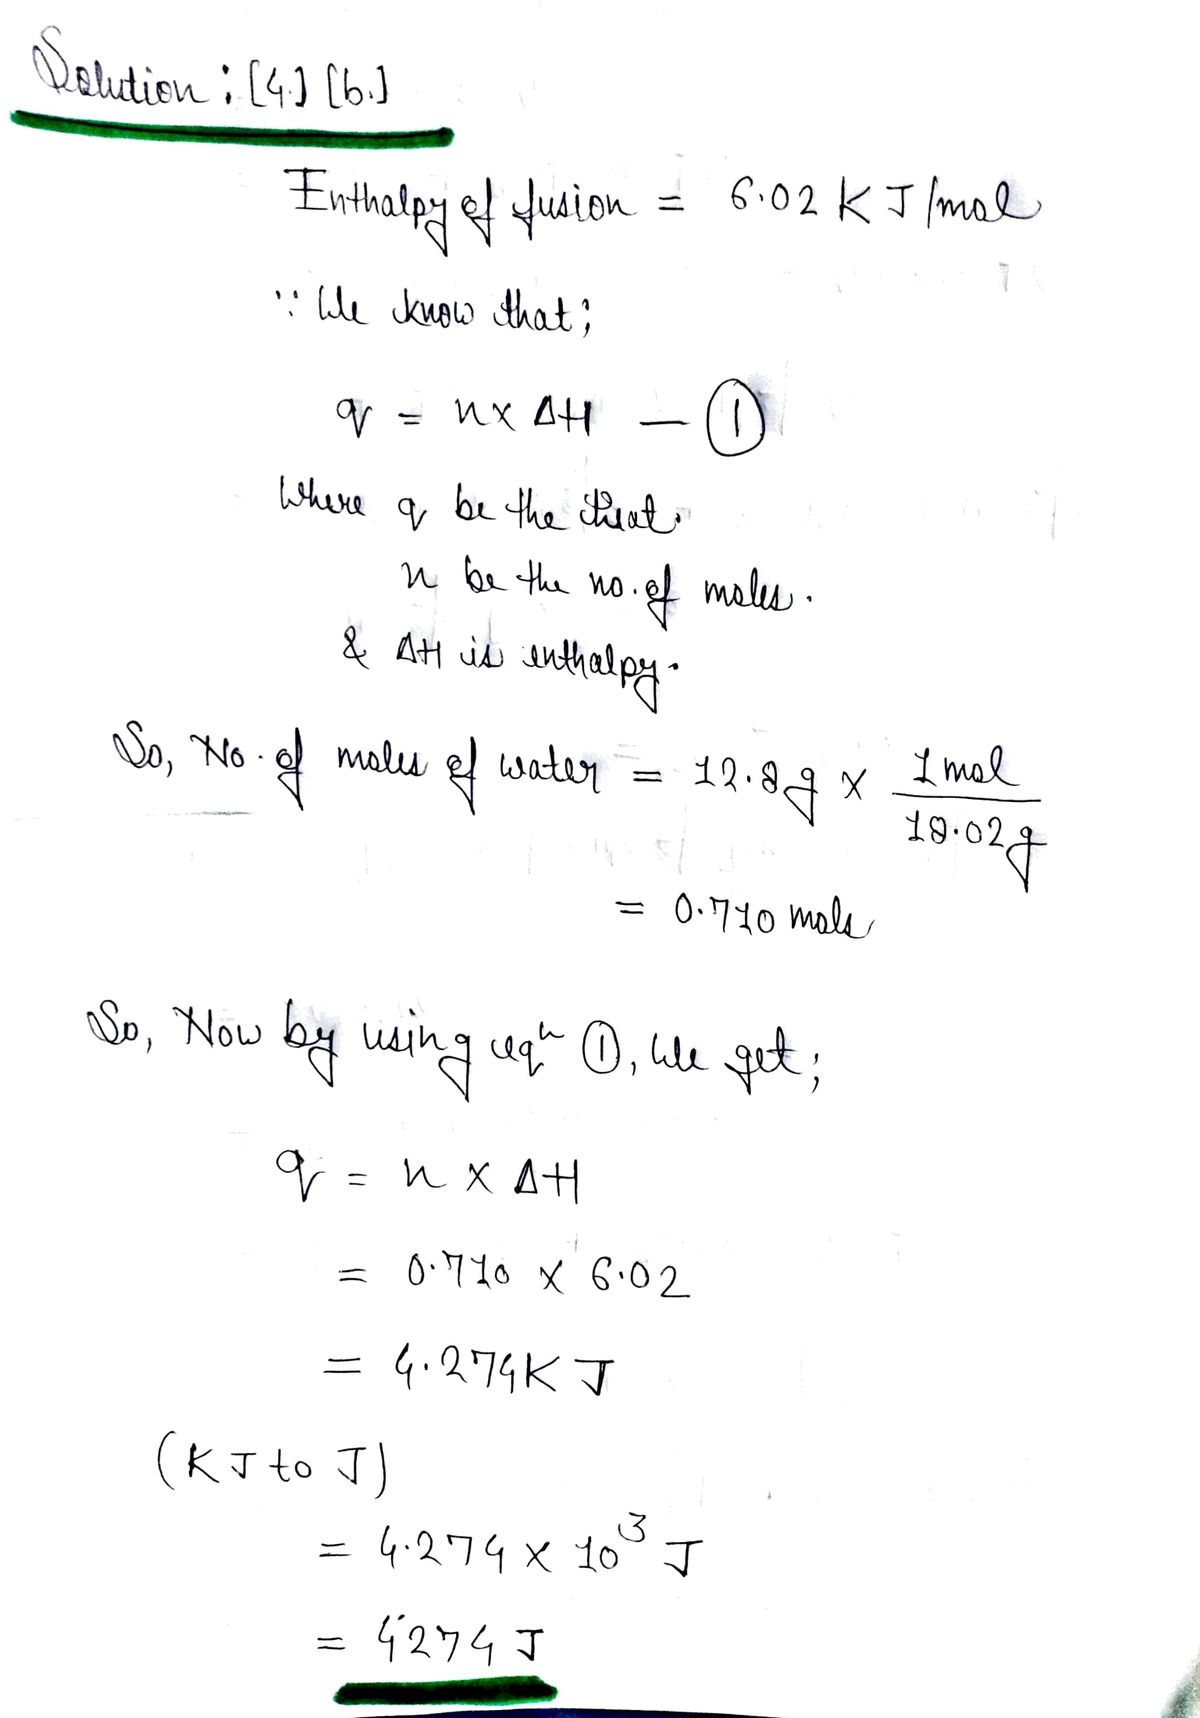 Solution : [4.] [b.]
Enthalpy of fusion = 6.02 KJ/mol
∵ We know that;
q = n x ΔH — ①
Where q be the heat.
n be the no. of moles.
& ΔH is enthalpy.
So, No. of moles of water = 12.8g x 1 mol / 18.02g
= 0.710 mols
So, Now by using eqⁿ ①, We get;
q = n x ΔH
= 0.710 x 6.02
= 4.274 KJ
(KJ to J)
= 4.274 x 10³ J
= 4274 J